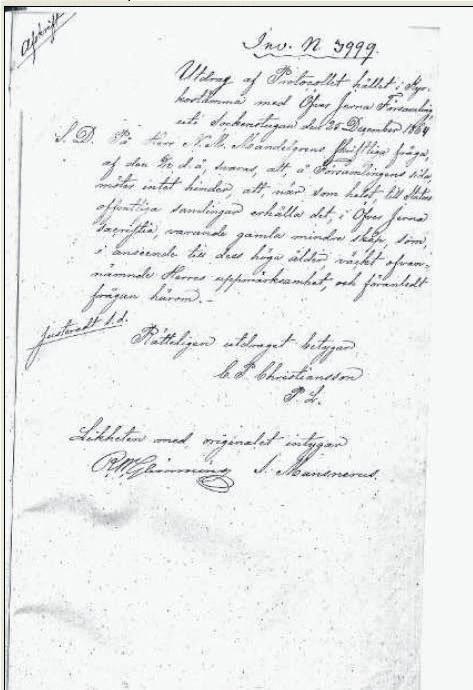 Afskrift
Inv. N 3999.
Utdrag af Protocollet hållet i Kyr-
kostämma med Öfver Jerna Församling
uti Sockenstugan den 26 December 1864
S. D. På Herr N. M. Mandelgrens skriftliga fråga,
af den d. ä, svaras, att, å Församlingens sida,
mötes intet hinder, att, när som helst, till Statens
offentliga samlingar erhålla det, i Öfver Jerna
sacristia, varande gamla mindre skåp, som,
i anseende till dess höga ålder väckt ofvan-
nämnde Herres uppmärksamhet, och föranledt
frågan härom.-
Justeradt s.d.
Rätteligen utdraget betygar
C. P. Christiansson
P. L.
Likheten med originalet intygar
S. Mansnerus.